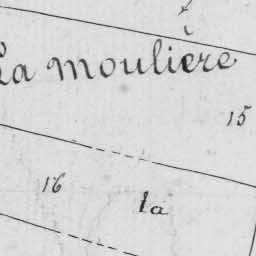 La moulière
15
16
la